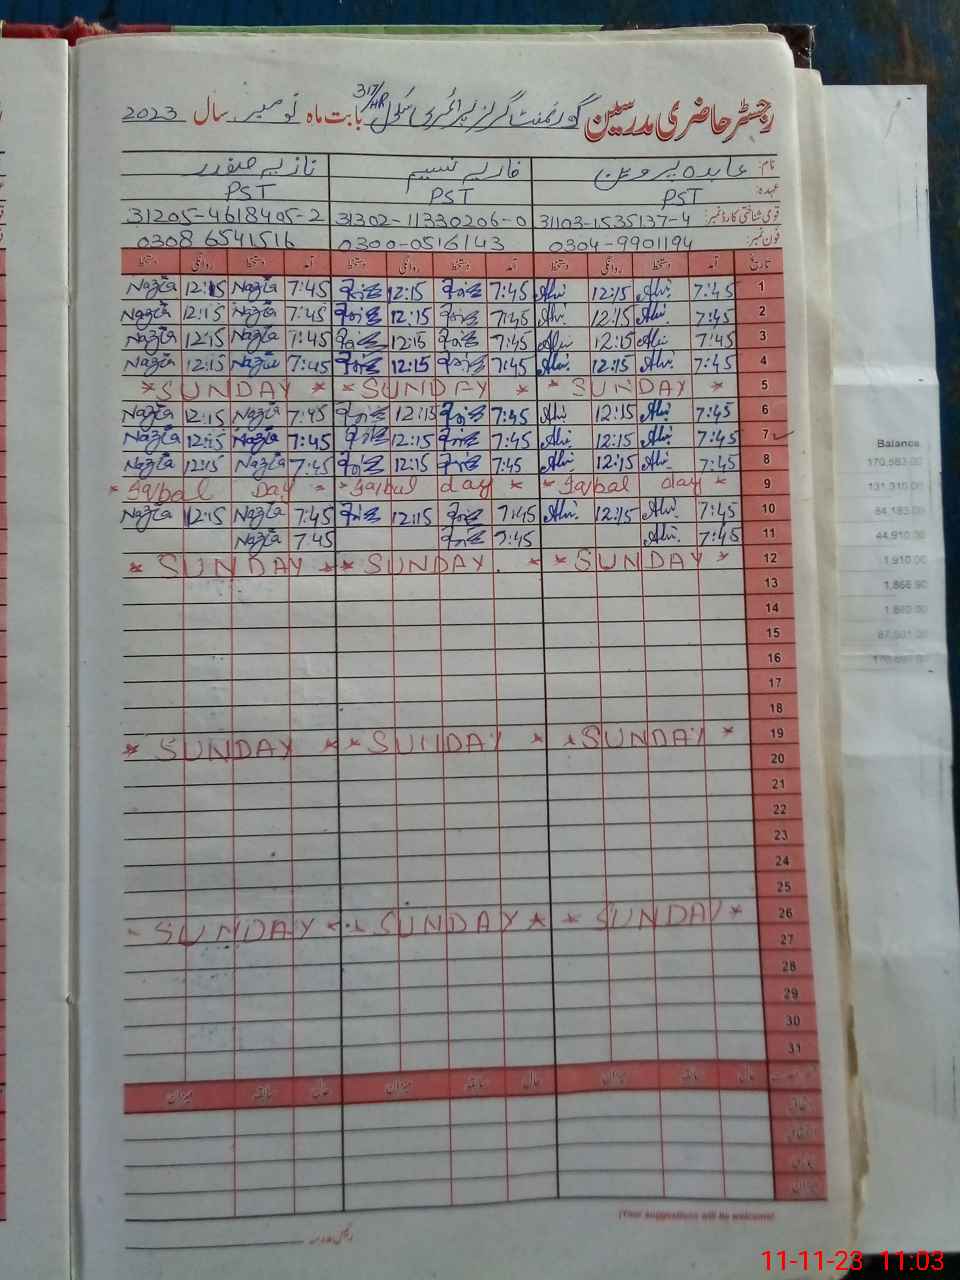 رجسٹر حاضری مدرسین گورنمنٹ گرلز پرائمری سکول 317/HR بابت ماہ نومبر سال 2023
نام: عابدہ پروین فاریہ نسیم نازیہ صفدر
عہدہ: PST PST PST
قومی شناختی کارڈ نمبر: 31103-1535137-4 31302-11330206-0 31205-4618495-2
فون نمبر: 0304-9901194 0300-0516143 0308 6541516
تاریخ آمد دستخط روانگی دستخط آمد دستخط روانگی دستخط آمد دستخط روانگی دستخط
Nazia 12:15 Nazia 7:45 12:15 7:45 12:15 7:45 1
Nazia 12:15 Nazia 7:45 12:15 7:45 12:15 7:45 2
Nazia 12:15 Nazia 7:45 12:15 7:45 12:15 7:45 3
Nazia 12:15 Nazia 7:45 12:15 7:45 12:15 7:45 4
* SUNDAY * * SUNDAY * * SUNDAY * 5
Nazia 12:15 Nazia 7:45 12:15 7:45 12:15 7:45 6
Nazia 12:15 Nazia 7:45 12:15 7:45 12:15 7:45 7
Nazia 12:15 Nazia 7:45 12:15 7:45 12:15 7:45 8
* Iqbal Day * Iqbal day * * Iqbal day * 9
Nazia 12:15 Nazia 7:45 12:15 7:45 12:15 7:45 10
Nazia 7:45 7:45 7:45 11
* SUNDAY * * SUNDAY * * SUNDAY * 12
13
14
15
16
17
18
* SUNDAY * * SUNDAY * * SUNDAY * 19
20
21
22
23
24
25
* SUNDAY * * SUNDAY * * SUNDAY * 26
27
28
29
30
31
حال سابقہ میزان حال سابقہ میزان حال سابقہ میزان
اتفاقی
میزان
(Your suggestions will be welcome)
رئیس مدرسہ
Balance
170,583.00
131,310.00
84,183.00
44,910.00
1,910.00
1,866.90
11-11-23 11:03